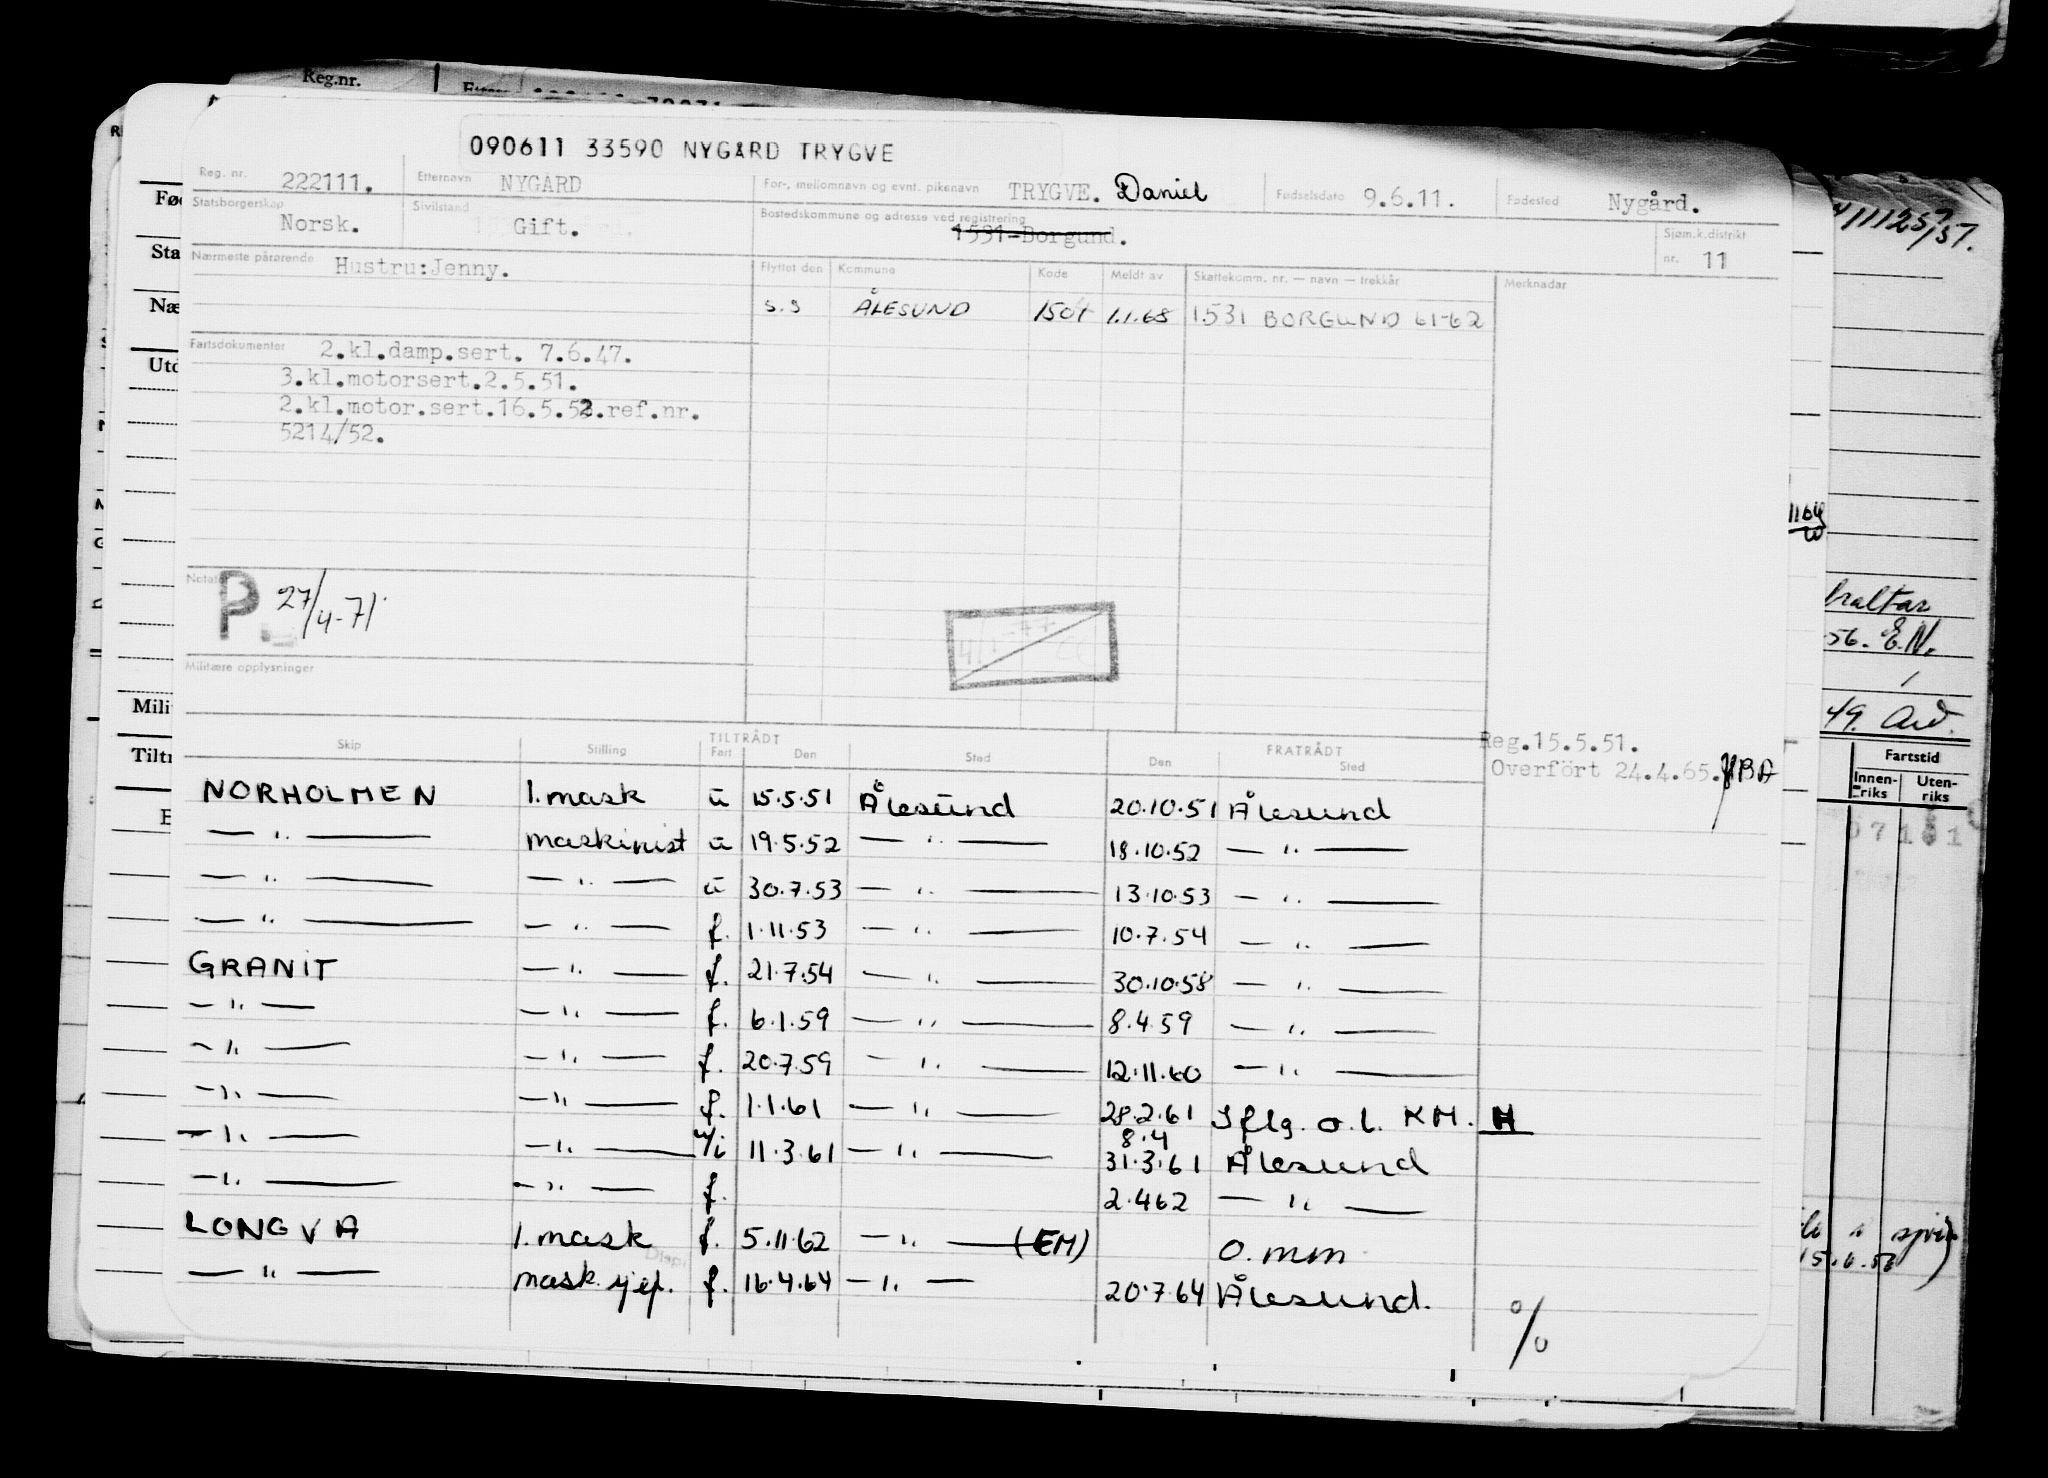 Reg.nr.
090611 33590 NYGÅRD TRYGVE
Reg. nr. 222111. Etternavn NYGÅRD For-, mellomnavn og evnt. pikenavn TRYGVE. Daniel Fødselsdato 9.6.11. Fødested Nygård.
Statsborgerskap Norsk. Sivilstand Gift. Bostedskommune og adresse ved registrering 1531-Borgund. Sjøm.k.distrikt nr. 11
Nærmeste pårørende Hustru:Jenny. Flyttet den Kommune Kode Meldt av Skattekomm. nr. — navn — trekkår Merknader
s.s ÅLESUND 1504 1.1.68 1531 BORGUND 61-62
Fartsdokumenter 2.kl.damp.sert. 7.6.47.
3.kl.motorsert.2.5.51.
2.kl.motor.sert.16.5.52.ref.nr.
5214/52.
Notater P 27/4-71
Militære opplysninger
Reg.15.5.51.
Overført 24.4.65.
Skip Stilling TILTRÅDT Fart Den Sted FRATRÅDT Den Sted
NORHOLMEN 1.mask u 15.5.51 Ålesund 20.10.51 Ålesund
— " — maskinist u 19.5.52 — " — 18.10.52 — " —
— " — — " — u 30.7.53 — " — 13.10.53 — " —
— " — — " — f. 1.11.53 — " — 10.7.54 — " —
GRANIT — " — f. 21.7.54 — " — 30.10.58 — " —
— " — — " — f. 6.1.59 — " — 8.4.59 — " —
— " — — " — f. 20.7.59 — " — 12.11.60 — " —
— " — — " — f. 1.1.61 — " — 28.2.61 Iflg. o.l. KM. H
— " — — " — u/i 11.3.61 — " — 8.4 31.3.61 Ålesund
— " — — " — f. 2.4.62 — " —
LONGVA 1.mask f. 5.11.62 — " — (EM) O.mm
— " — mask.sjef. f. 16.4.64 — " — 20.7.64 Ålesund.
%
56. E.N.
49.
Fartstid
Innen-riks Uten-riks